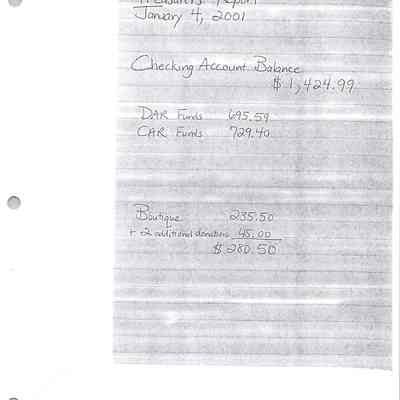 Treasurer's Report
January 4, 2001
Checking Account Balance
$1,424.99
DAR Funds 695.59
CAR Funds 729.40
Boutique 235.50
+ 2 additional donations 45.00
$280.50